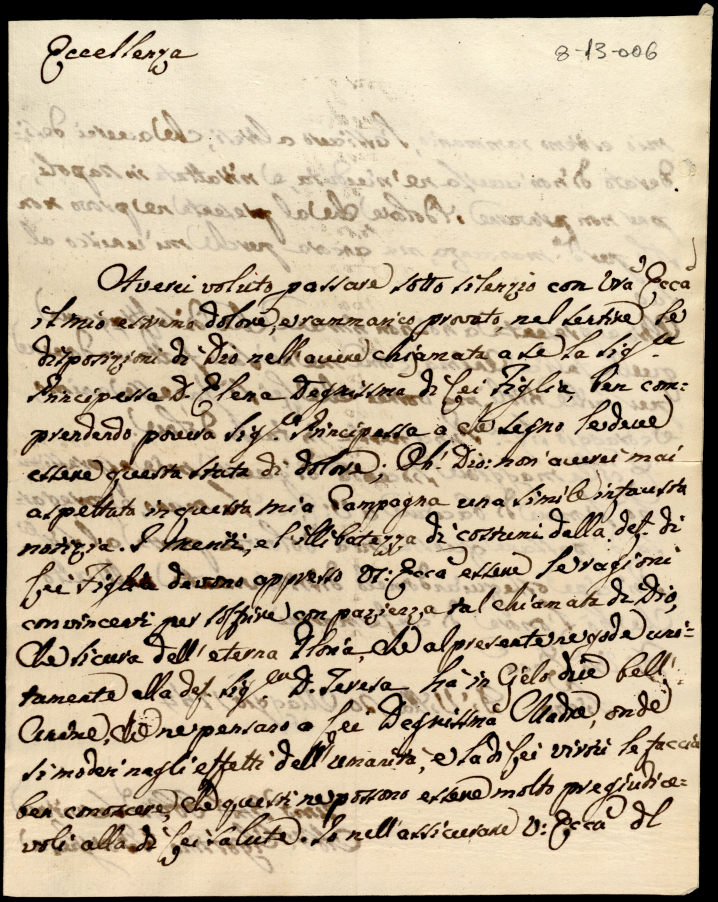 Eccellenza
8-13-006
Averei voluto passare sotto silenzio con Vrã Eccã
il mio estremo dolore, e rammarico provato nel sentire le
disposizioni di Dio nell'avere chiamata a se la Sig.ra
Principessa D. Elena Degnissma di Lei Figlia, ben com:
prendendo povera Sig.ra Principessa a che segno le deve
essere questa stata di dolore; Oh! Dio: non averei mai
aspettata in questa mia Campagna una simile infausta
notizia. I meriti, e l'illibatezza di costumi della def. di
Lei Figlia devono appresso V: Eccã essere le ragioni
convincenti per soffrire con pazienza tal chiamata di Dio,
che sicura dell'eterna Gloria, che al presente ne gode uni:
tamente alla def. Sig.ra D. Teresa hà in Cielo due bell'
Anime, che ne pensano a Lei Degnissma Madre, onde
si moderi negli effetti dell'umanità, e la di Lei virtù le faccia
ben conoscere, che questi ne possono essere molto pregiudice:
voli alla di Lei salute. Io nell'assicurare V: Eccã dl